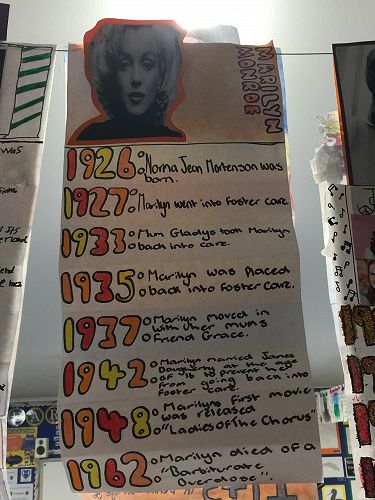 MARILYN
MONROE
1926: Norma Jean Mortenson was
born.
1927: Marilyn went into foster care.
1933: Mum Gladys took Marilyn
back into care.
1935: Marilyn was placed
back into foster care.
1937: Marilyn moved in
with her mums
friend Grace.
1942: Marilyn married James
Dougherty at the age
of 16 to prevent her
from going back into
foster care.
1948: Marilyns first movie
was released
"Ladies Of The Chorus"
1962: Marilyn died of a
"Barbiturate
Overdose"